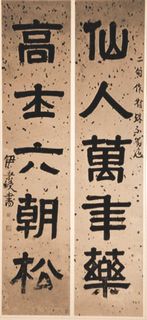 仙人萬年藥
高士六朝松
伊秉綬書